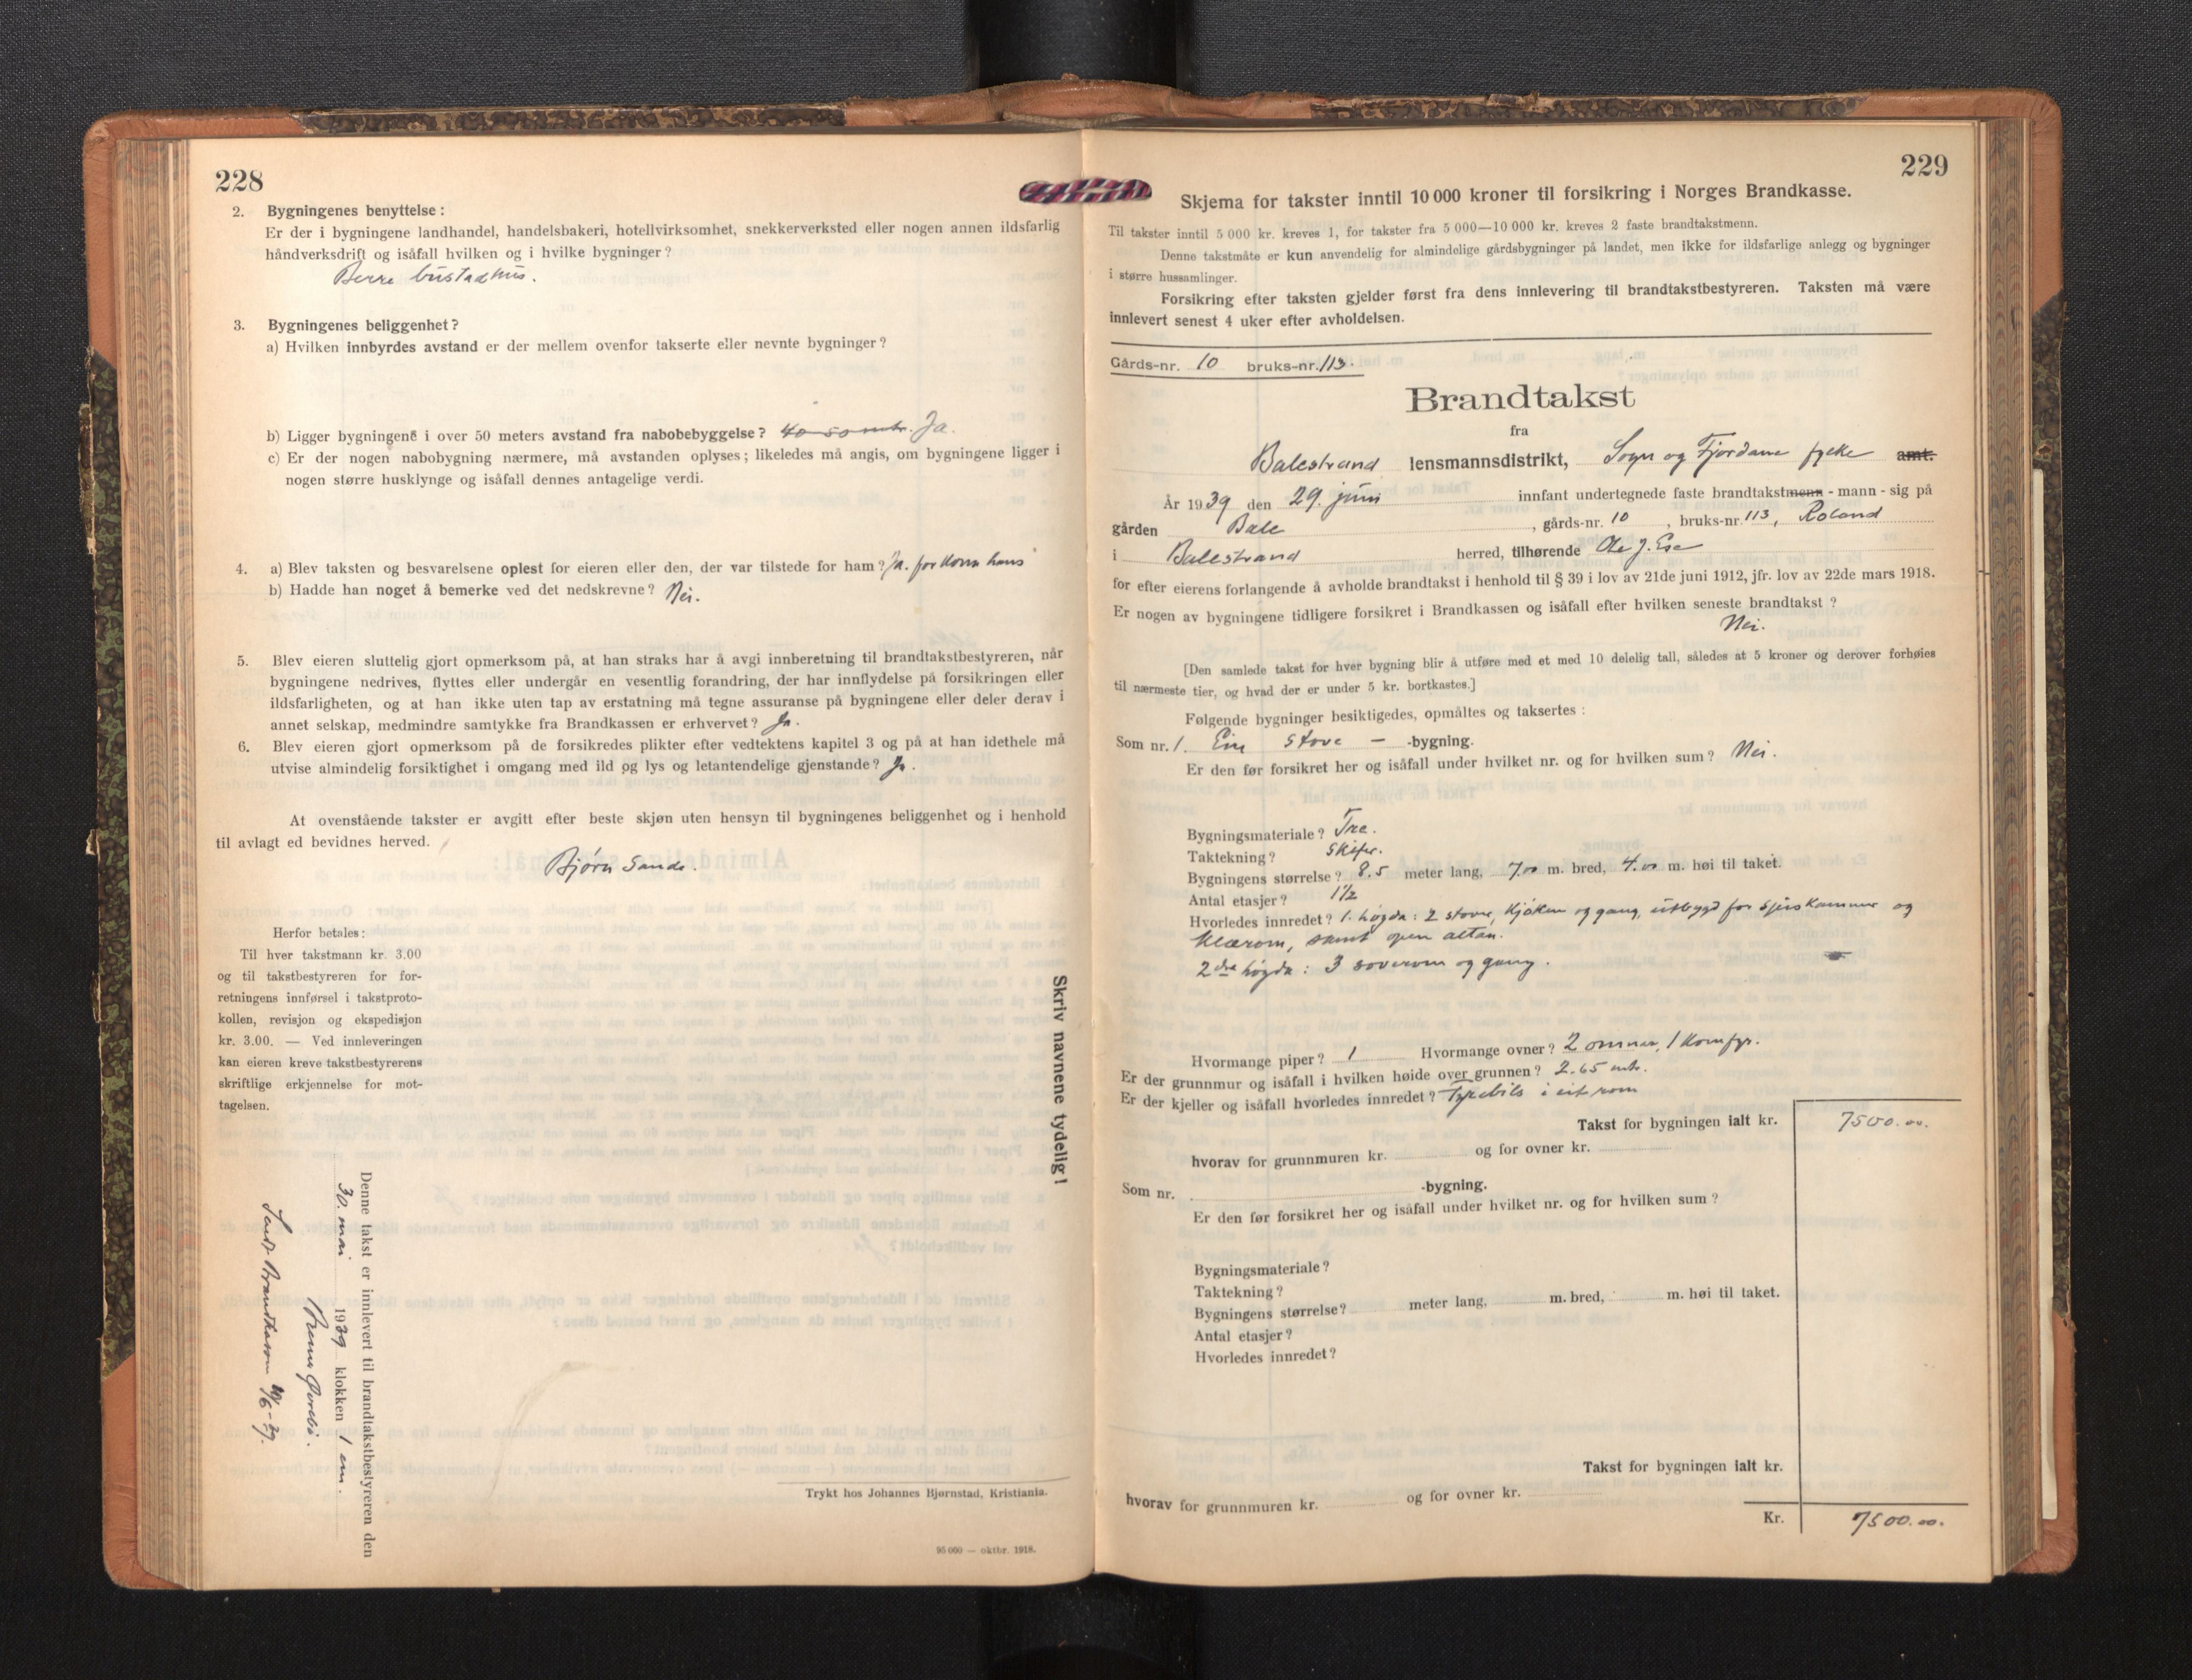 228
2. Bygningenes benyttelse:
Er der i bygningene landhandel, handelsbakeri, hotellvirksomhet, snekkerverksted eller nogen annen ildsfarlig
håndverksdrift og isåfall hvilken og i hvilke bygninger?
Berre bustadhus.
3. Bygningenes beliggenhet?
a) Hvilken innbyrdes avstand er der mellem ovenfor takserte eller nevnte bygninger?
b) Ligger bygningene i over 50 meters avstand fra nabobebyggelse? 40-50 mtr. Ja.
c) Er der nogen nabobygning nærmere, må avstanden oplyses; likeledes må angis, om bygningene ligger i
nogen større husklynge og isåfall dennes antagelige verdi.
4. a) Blev taksten og besvarelsene oplest for eieren eller den, der var tilstede for ham? Ja. for kona hans
b) Hadde han noget å bemerke ved det nedskrevne? Nei.
5. Blev eieren sluttelig gjort opmerksom på, at han straks har å avgi innberetning til brandtakstbestyreren, når
bygningene nedrives, flyttes eller undergår en vesentlig forandring, der har innflydelse på forsikringen eller
ildsfarligheten, og at han ikke uten tap av erstatning må tegne assuranse på bygningene eller deler derav i
annet selskap, medmindre samtykke fra Brandkassen er erhvervet? Ja.
6. Blev eieren gjort opmerksom på de forsikredes plikter efter vedtektens kapitel 3 og på at han idethele må
utvise almindelig forsiktighet i omgang med ild og lys og letantendelige gjenstande? Ja.
At ovenstående takster er avgitt efter beste skjøn uten hensyn til bygningenes beliggenhet og i henhold
til avlagt ed bevidnes herved.
Bjørn Sande.
Herfor betales:
Til hver takstmann kr. 3.00
og til takstbestyreren for for-
retningens innførsel i takstproto-
kollen, revisjon og ekspedisjon
kr. 3.00. — Ved innleveringen
kan eieren kreve takstbestyrerens
skriftlige erkjennelse for mot-
tagelsen.
Skriv navnene tydelig!
Denne takst er innlevert til brandtakstbestyreren den
30. mai 1939 klokken 1 em.
Sendt Brandkassen
Trykt hos Johannes Bjørnstad, Kristiania.
95 000 — oktbr. 1918.
229
Skjema for takster inntil 10 000 kroner til forsikring i Norges Brandkasse.
Til takster inntil 5 000 kr. kreves 1, for takster fra 5 000—10 000 kr. kreves 2 faste brandtakstmenn.
Denne takstmåte er kun anvendelig for almindelige gårdsbygninger på landet, men ikke for ildsfarlige anlegg og bygninger
i større hussamlinger.
Forsikring efter taksten gjelder først fra dens innlevering til brandtakstbestyreren. Taksten må være
innlevert senest 4 uker efter avholdelsen.
Gårds-nr. 10 bruks-nr. 113.
Brandtakst
fra
Balestrand lensmannsdistrikt, Sogn og Fjordane fylke amt.
År 1939 den 29. juni innfant undertegnede faste brandtakstmenn - mann - sig på
gården Bale, gårds-nr. 10, bruks-nr 113, Roland
i Balestrand herred, tilhørende Ole J. Ese
for efter eierens forlangende å avholde brandtakst i henhold til § 39 i lov av 21de juni 1912, jfr. lov av 22de mars 1918.
Er nogen av bygningene tidligere forsikret i Brandkassen og isåfall efter hvilken seneste brandtakst?
Nei.
[Den samlede takst for hver bygning blir å utføre med et med 10 delelig tall, således at 5 kroner og derover forhøies
til nærmeste tier, og hvad der er under 5 kr. bortkastes.]
Følgende bygninger besiktigedes, opmåltes og taksertes:
Som nr. 1. Ein stove - -bygning.
Er den før forsikret her og isåfall under hvilket nr. og for hvilken sum? Nei.
Bygningsmateriale? Tre.
Taktekning? Skifer.
Bygningens størrelse? 8.5 meter lang, 7.00 m. bred, 4.00 m. høi til taket.
Antal etasjer? 1½
Hvorledes innredet? 1. høgda: 2 stover, kjøken og gang, utbygd for spiskammer og
klærom, samt open altan.
2dre høgda: 3 soverom og gang.
Hvormange piper? 1 Hvormange ovner? 2 omnar, 1 komfyr.
Er der grunnmur og isåfall i hvilken høide over grunnen? 2.65 mtr.
Er der kjeller og isåfall hvorledes innredet? i eit rom
Takst for bygningen ialt kr. 7500.00.
hvorav for grunnmuren kr. og for ovner kr.
Som nr. -bygning.
Er den før forsikret her og isåfall under hvilket nr. og for hvilken sum?
Bygningsmateriale?
Taktekning?
Bygningens størrelse? meter lang, m. bred, m. høi til taket.
Antal etasjer?
Hvorledes innredet?
Takst for bygningen ialt kr.
hvorav for grunnmuren kr. og for ovner kr.
Kr. 7500.00.